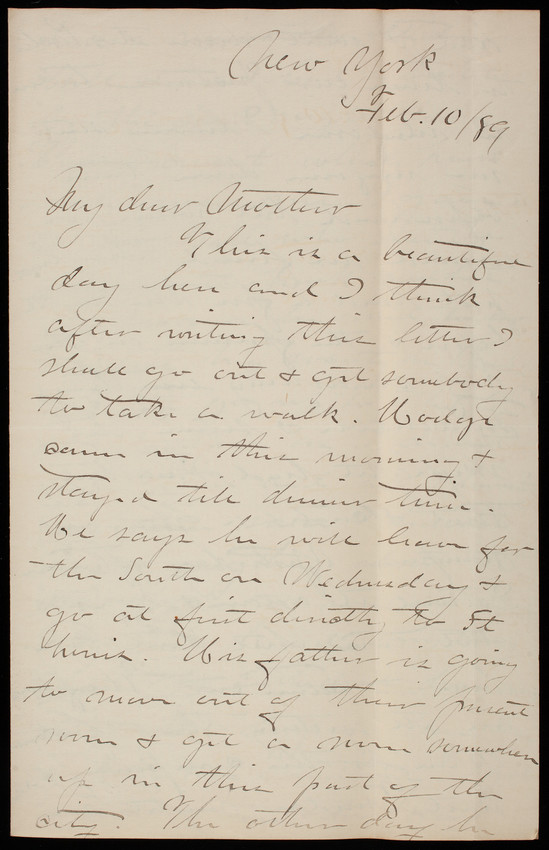 New York
Feb. 10/89
My dear Mother
This is a beautiful
day here and I think
after writing this letter I
shall go out & get somebody
to take a walk. Hodge
came in this morning &
stayed till dinner time.
He says he will leave for
the South on Wednesday &
go at first directly to St
Louis. His father is going
to move out of their present
room & get a room somewhere
up in this part of the
city. The other day he